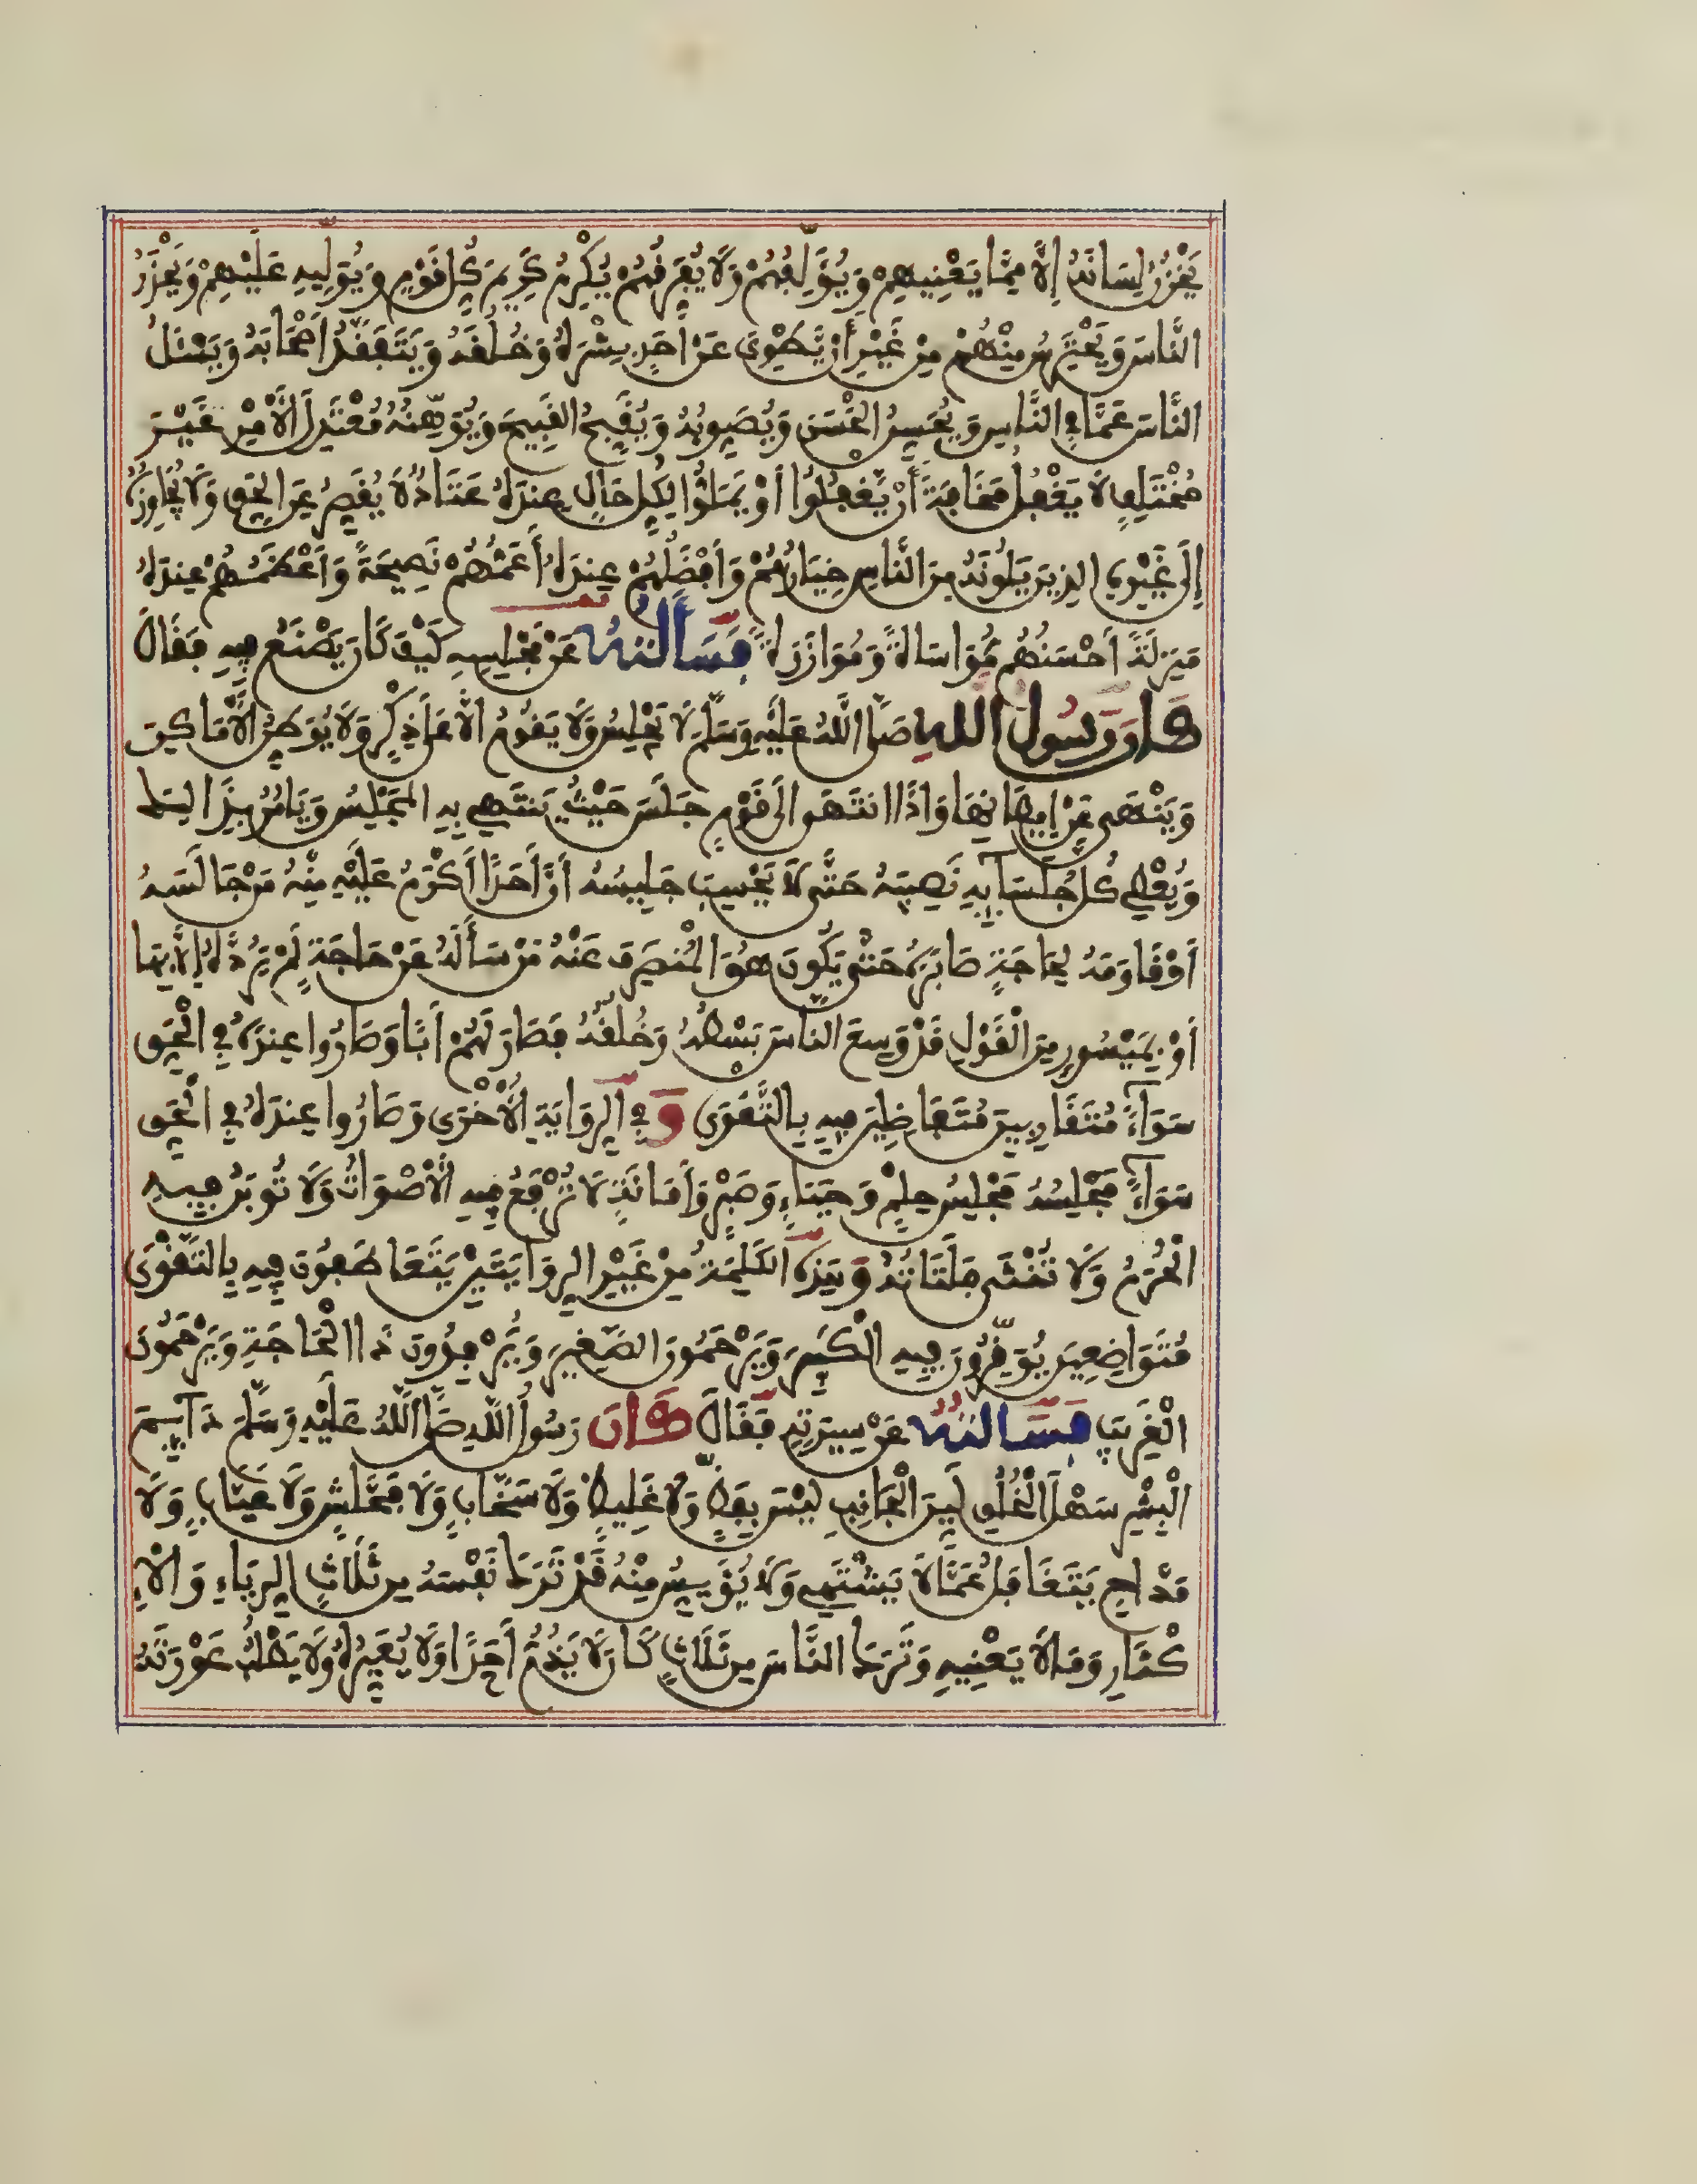 يَخْزُنُ لِسَانَهُ إِلَّا مِمَّا يَعْنِيهِمْ وَيُؤَلِّفُهُمْ وَلَا يُفَرِّقُهُمْ يُكْرِمُ كَرِيمَ كُلِّ قَوْمٍ وَيُوَلِّيهِ عَلَيْهِمْ وَيَحْذَرُ
النَّاسَ وَيَحْتَرِسُ مِنْهُمْ مِنْ غَيْرِ أَنْ يَطْوِيَ عَنْ أَحَدٍ بِشْرَهُ وَخُلُقَهُ وَيَتَفَقَّدُ أَصْحَابَهُ وَيَسْئَلُ
النَّاسَ عَمَّا فِي النَّاسِ وَيُحَسِّنُ الْحَسَنَ وَيُصَوِّبُهُ وَيُقَبِّحُ الْقَبِيحَ وَيُوَهِّنُهُ مُعْتَدِلَ الْأَمْرِ غَيْرَ
مُخْتَلِفٍ لَا يَغْفُلُ مَخَافَةَ أَنْ يَغْفُلُوا أَوْ يَمَلُّوا لِكُلِّ حَالٍ عِنْدَهُ عَتَادٌ لَا يُقَصِّرُ عَنِ الْحَقِّ وَلَا يُجَاوِزُهُ
إِلَى غَيْرِهِ الَّذِينَ يَلُونَهُ مِنَ النَّاسِ خِيَارُهُمْ وَأَفْضَلُهُمْ عِنْدَهُ أَعَمُّهُمْ نَصِيحَةً وَأَعْظَمُهُمْ عِنْدَهُ
مَنْزِلَةً أَحْسَنُهُمْ مُوَاسَاةً وَمُوَازَرَةً فَسَأَلْتُهُ عَنْ مَجْلِسِهِ كَيْفَ كَانَ يَصْنَعُ فِيهِ فَقَالَ
كَانَ رَسُولُ اللهِ صَلَّى اللَّهُ عَلَيْهِ وَسَلَّمَ لَا يَجْلِسُ وَلَا يَقُومُ إِلَّا عَلَى ذِكْرٍ وَلَا يُوَطِّنُ الْأَمَاكِنَ
وَيَنْهَى عَنْ إِيطَانِهَا وَإِذَا انْتَهَى إِلَى قَوْمٍ جَلَسَ حَيْثُ يَنْتَهِي بِهِ الْمَجْلِسُ وَيَأْمُرُ بِذَالِكَ
وَيُعْطِي كُلَّ جُلَسَائِهِ نَصِيبَهُ حَتَّى لَا يَحْسِبَ جَلِيسُهُ أَنَّ أَحَدًا أَكْرَمُ عَلَيْهِ مِنْهُ مَنْ جَالَسَهُ
أَوْ قَاوَمَهُ لِحَاجَةٍ صَابَرَهُ حَتَّى يَكُونَ هُوَ الْمُنْصَرِفَ عَنْهُ مَنْ سَأَلَهُ عَنْ حَاجَةٍ لَمْ يَرُدَّهُ إِلَّا بِهَا
أَوْ بِمَيْسُورٍ مِنَ الْقَوْلِ قَدْ وَسِعَ النَّاسَ بَسْطُهُ وَخُلُقُهُ فَصَارَ لَهُمْ أَبًا وَصَارُوا عِنْدَهُ فِي الْحَقِّ
سَوَاءً مُتَقَارِبِينَ مُتَفَاضِلِينَ فِيهِ بِالتَّقْوَى وَفِي الرِّوَايَةِ الْأُخْرَى وَصَارُوا عِنْدَهُ فِي الْحَقِّ
سَوَاءً مَجْلِسُهُ مَجْلِسُ حِلْمٍ وَحَيَاءٍ وَصَبْرٍ وَأَمَانَةٍ لَا تُرْفَعُ فِيهِ الْأَصْوَاتُ وَلَا تُوبَنُ فِيهِ
الْحُرَمُ وَلَا تُنْثَى فَلَتَاتُهُ وَهَذِهِ الْكَلِمَةُ مِنْ غَيْرِ الرِّوَايَتَيْنِ يَتَعَاطَفُونَ فِيهِ بِالتَّقْوَى
مُتَوَاضِعِينَ يُوَقِّرُونَ فِيهِ الْكَبِيرَ وَيَرْحَمُونَ الصَّغِيرَ وَيَرْفِدُونَ ذَا الْحَاجَةِ وَيَرْحَمُونَ
الْغَرِيبَ فَسَأَلْتُهُ عَنْ سِيرَتِهِ فَقَالَ كَانَ رَسُولُ اللَّهِ صَلَّى اللَّهُ عَلَيْهِ وَسَلَّمَ دَائِمَ
الْبِشْرِ سَهْلَ الْخُلُقِ لَيِّنَ الْجَانِبِ لَيْسَ بِفَظٍّ وَلَا غَلِيظٍ وَلَا سَخَّابٍ وَلَا فَحَّاشٍ وَلَا عَيَّابٍ وَلَا
مَدَّاحٍ يَتَغَافَلُ عَمَّا لَا يَشْتَهِي وَلَا يُؤْيَسُ مِنْهُ قَدْ تَرَكَ نَفْسَهُ مِنْ ثَلَاثٍ الرِّيَاءِ وَالْإِ
كْثَارِ وَمَا لَا يَعْنِيهِ وَتَرَكَ النَّاسَ مِنْ ثَلَاثٍ كَانَ لَا يَذُمُّ أَحَدًا وَلَا يُعَيِّرُهُ وَلَا يَطْلُبُ عَوْرَتَهُ